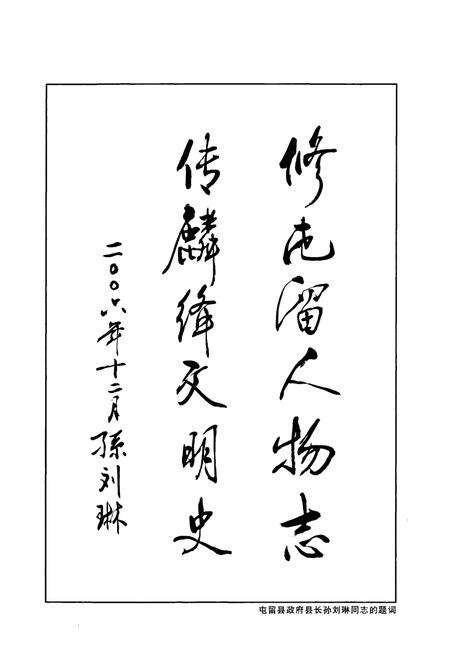 修屯留人物志
传麟绛文明史
二〇〇六年十二月 孙刘琳
屯留县政府县长孙刘琳同志的题词